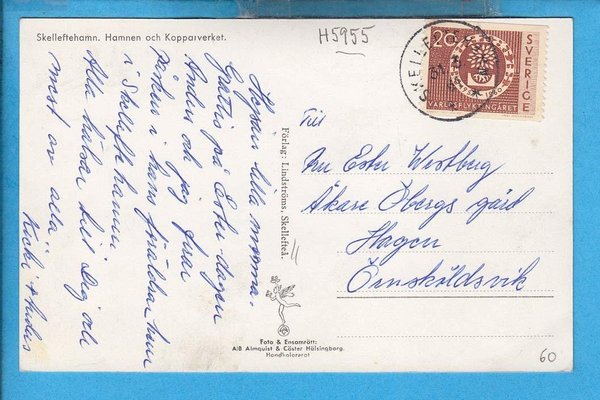 Skelleftehamn. Hamnen och Kopparverket.
H5955
Hejsan lilla mamma.
Grattis på Ester dagen
och jag firar
i hans föräldrar hem
i Skelleftehamn.
Alla hälsar till Dig och
mest av alla
Förlag: Lindströms, Skellefteå.
Foto & Ensamrätt:
A/B Almquist & Cöster Hälsingborg.
Handkolorerat
20
SVERIGE
1960
VÄRLDSFLYKTINGÅRET
SKELLEFTE
Till
Fru Ester Westberg
Åkare Öbergs gård
Hagen
Örnsköldsvik
60